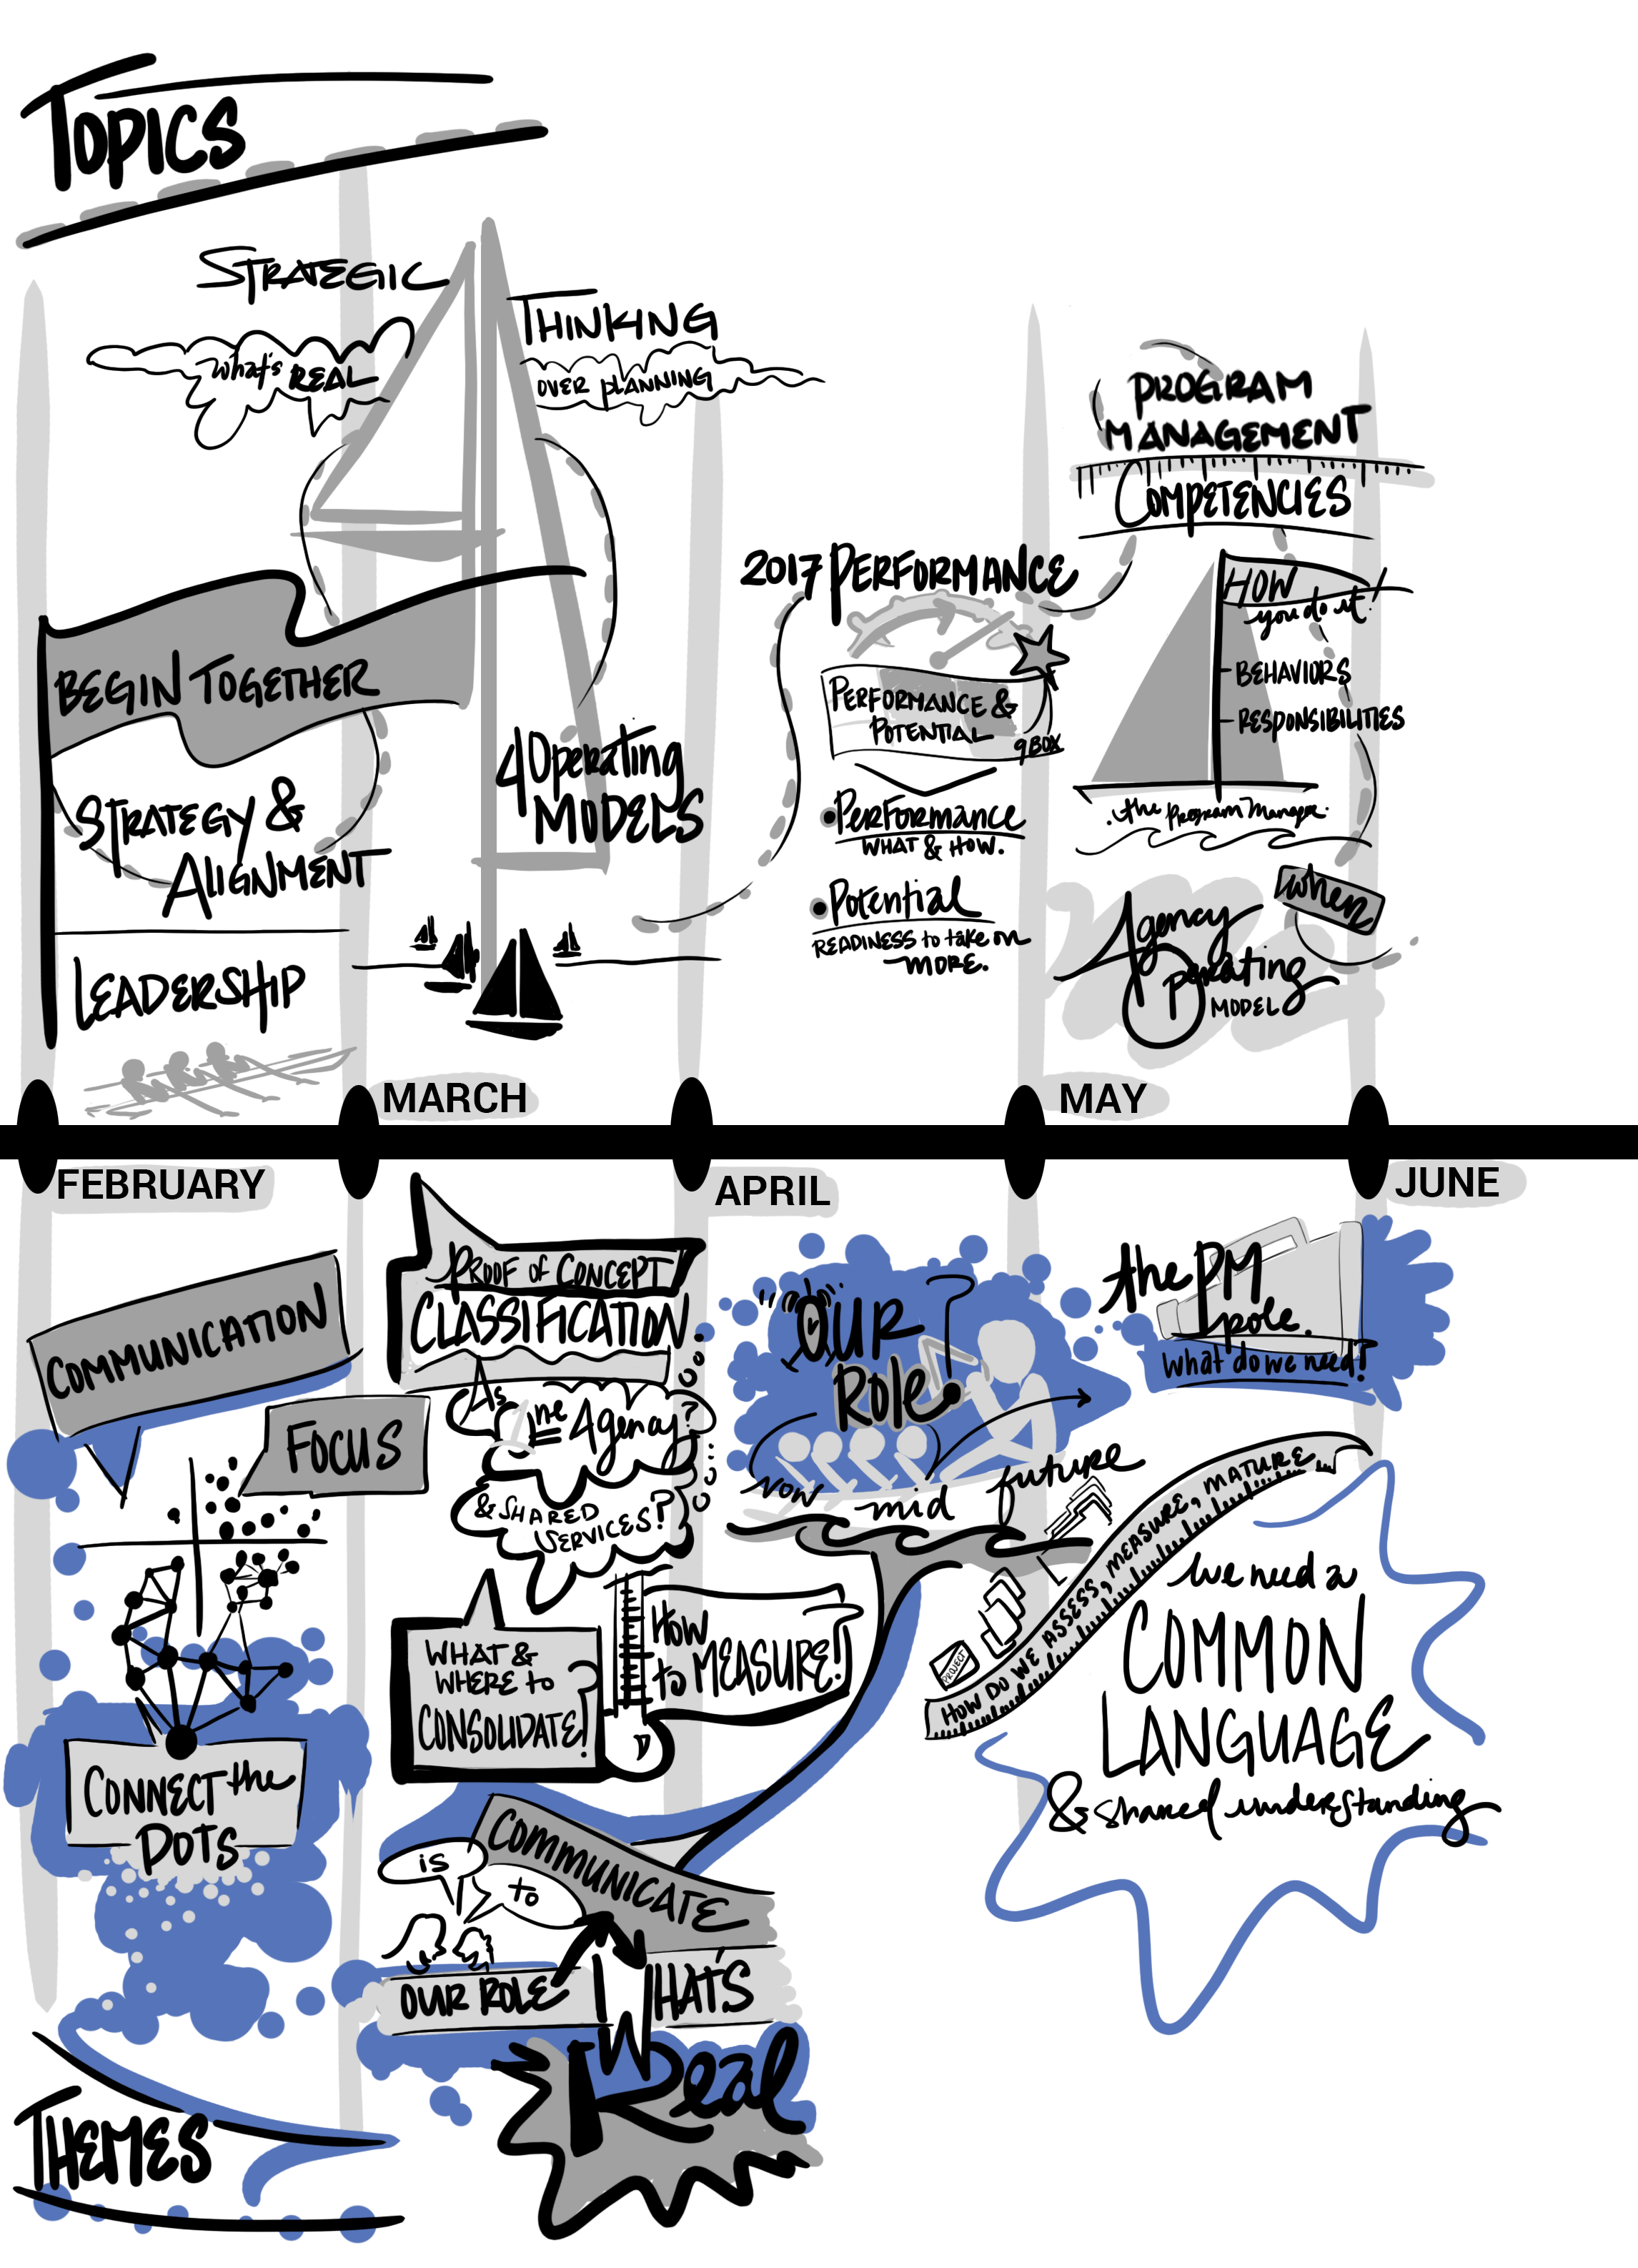 TOPICS
STRATEGIC
THINKING
What's REAL
OVER PLANNING
BEGIN TOGETHER
STRATEGY &
ALIGNMENT
LEADERSHIP
4 Operating
MODELS
2017 PERFORMANCE
PERFORMANCE &
POTENTIAL
9 BOX
• Performance
WHAT & HOW.
• Potential
READINESS to take on
MORE.
PROGRAM
MANAGEMENT
COMPETENCIES
HOW
you do it!
- BEHAVIORS
- RESPONSIBILITIES
. the Program Manager.
when
Agency
Operating
MODEL
MARCH
MAY
FEBRUARY
APRIL
JUNE
COMMUNICATION
FOCUS
CONNECT the
DOTS
PROOF of CONCEPT
CLASSIFICATION.
As
One Agency?
& SHARED
SERVICES?
WHAT &
WHERE to
CONSOLIDATE?
HOW
to MEASURE?
COMMUNICATE
is
to
OUR ROLE
WHAT'S
Real
OUR
ROLE?
NOW
mid
future
the PM
pole.
What do we need?
PROJECT
HOW DO WE ASSESS, MEASURE, MATURE
We need a
COMMON
LANGUAGE
& shared understanding
THEMES